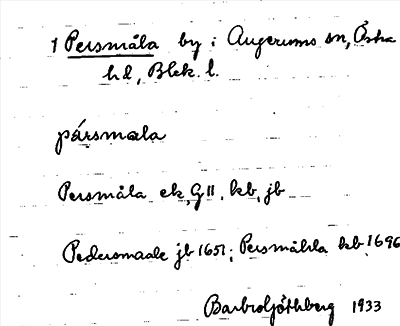 1 Persmåla by i Augerums sn, Östra
hd, Blek. l.
pársmala
Persmåla ek, GII, kb, jb
Pedersmaale jb 1651; Persmåhla kb 1696
Barbro Ljóthberg 1933